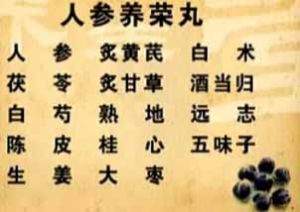 人参养荣丸
人参 炙黄芪 白术
茯苓 炙甘草 酒当归
白芍 熟地 远志
陈皮 桂心 五味子
生姜 大枣